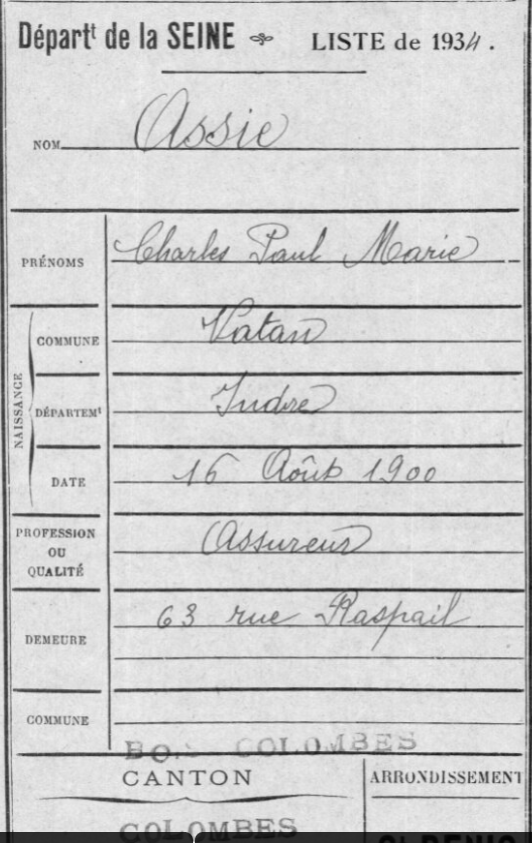 Départᵗ de la SEINE LISTE de 1934.
NOM Assie
PRÉNOMS Charles Paul Marie
NAISSANCE
COMMUNE Vatan
DÉPARTEMᵗ Indre
DATE 16 Août 1900
PROFESSION OU QUALITÉ Assureur
DEMEURE 63 rue Raspail
COMMUNE
BOIS COLOMBES
CANTON ARRONDISSEMENT
COLOMBES Sᵗ DENIS